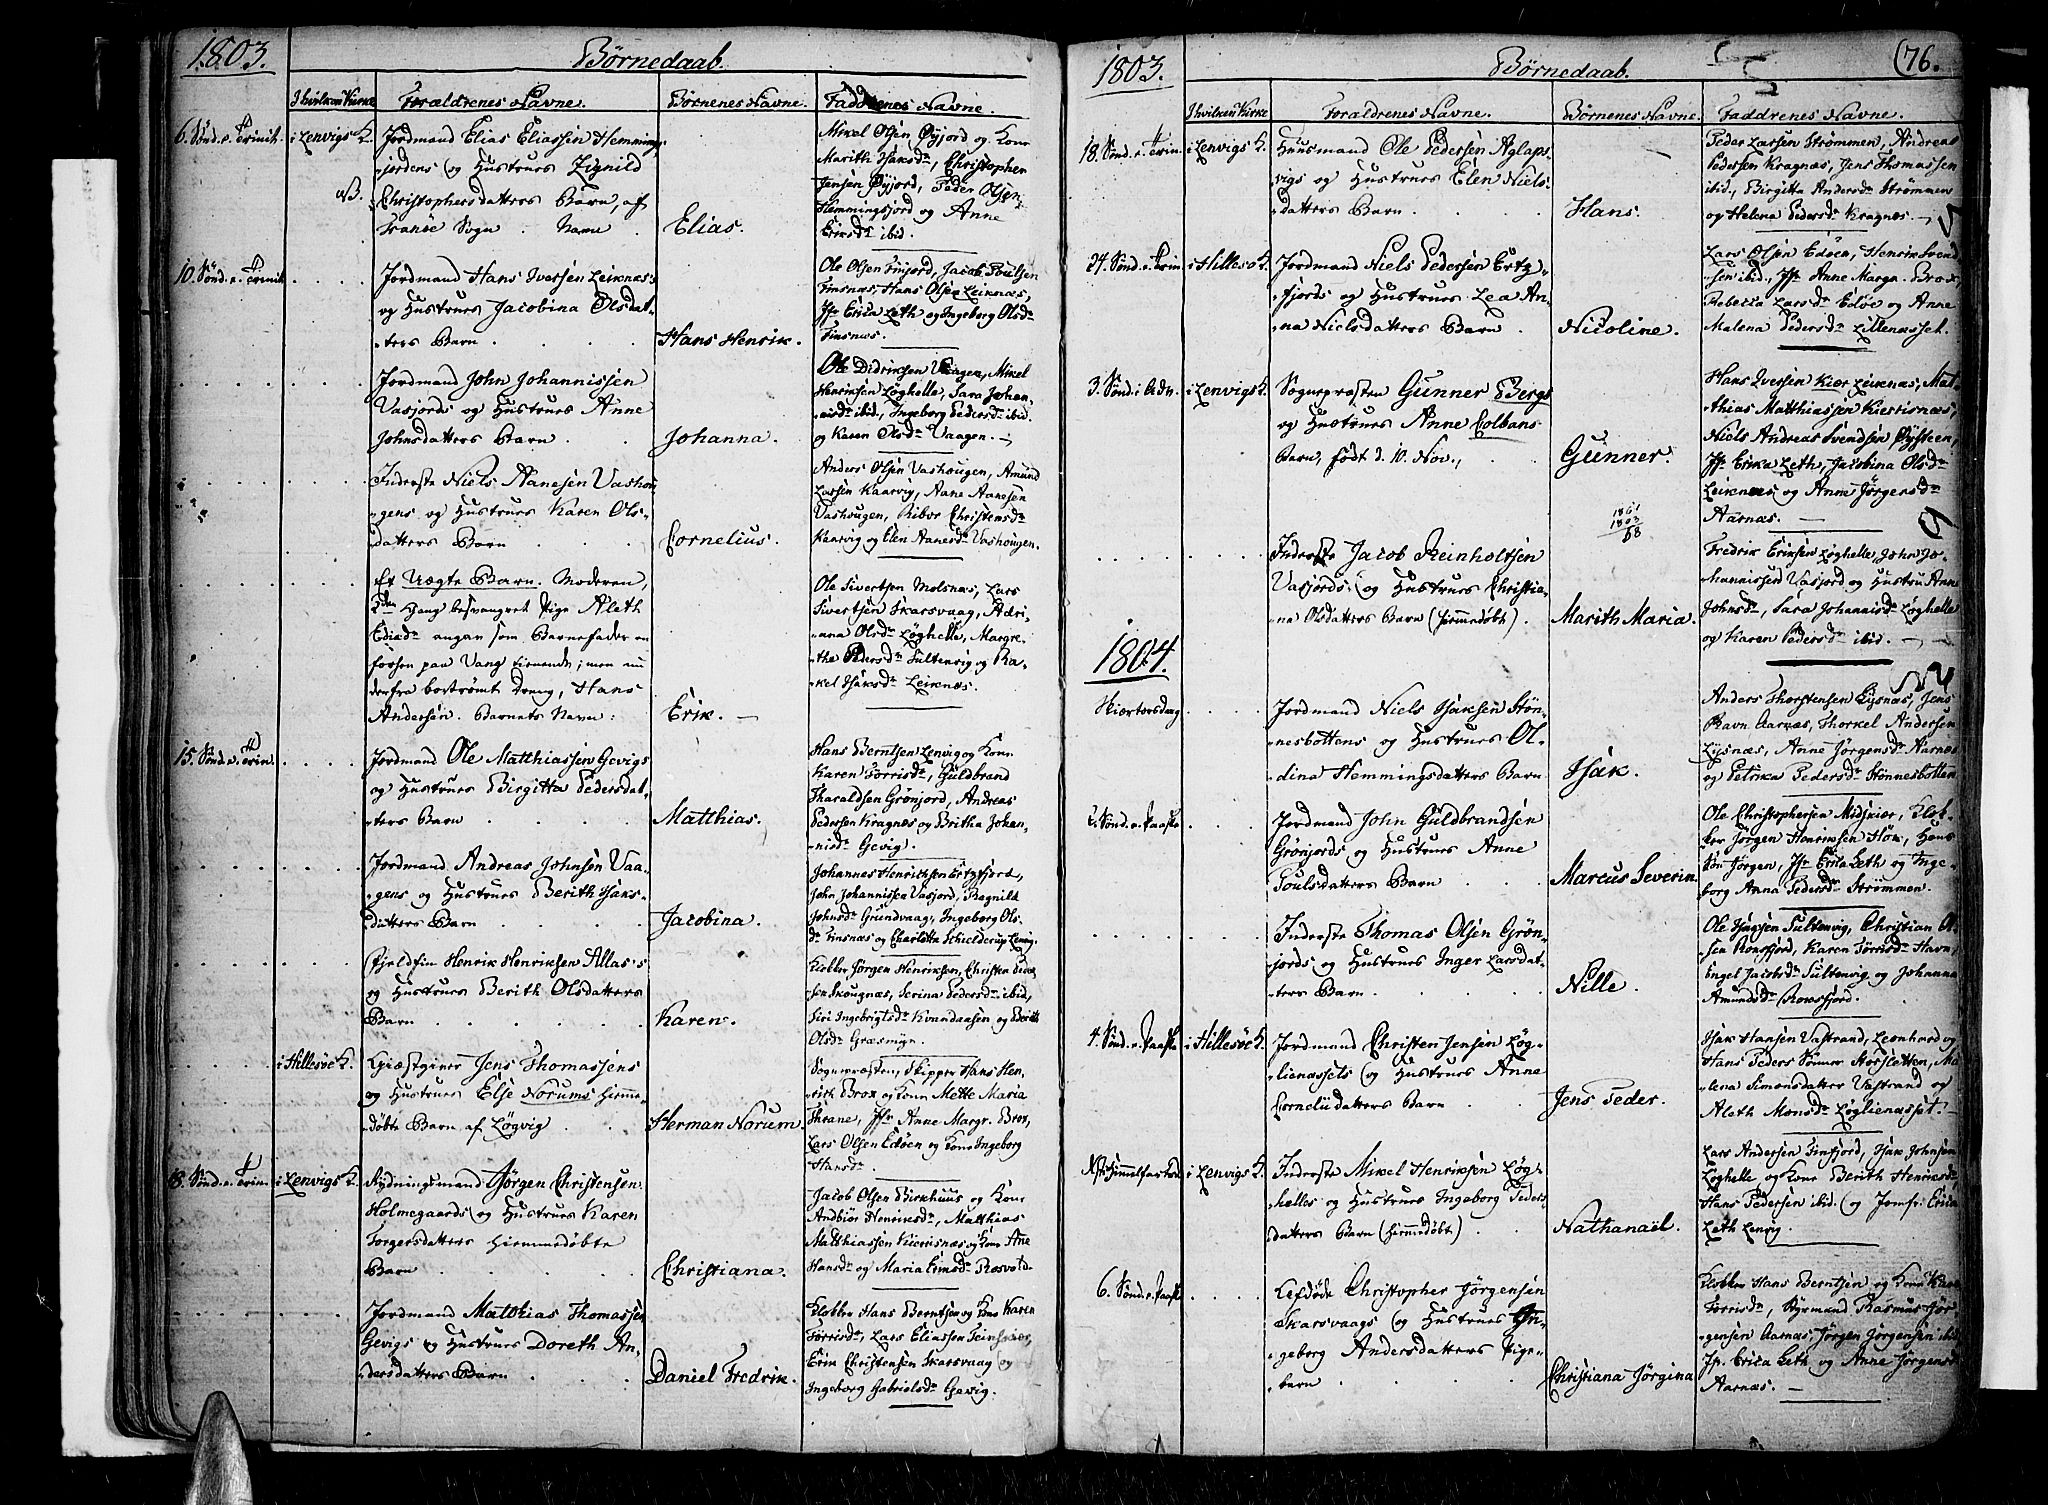 1803.
Børnedaab.
I hvilken Kirke
Forældrenes Navne.
Børnenes Navne.
Faddrenes Navne.
6. Sønd. e. Trinit.
i Lenvigs K.
Jordmand Elias Eliassen Hemming-
fjordens og Hustrues Zignild
NB.
Christophersdatters Barn, af
Tranöe Sogn. Navn
Elias.
Mikel Olsen Øyjord og Kone
Marith Isaksdr, Christopher
Jensen Øyjord, Peder Olsen
Hemmingsjord og Anne
Eriksdr ibid.
10. Sønd. e. Trinit.
Jordmand Hans Iversen Leiknæs
og Hustrues Jacobina Olsdat-
ters Barn
Hans Henrik.
Ole Olsen Finjord, Jacob Poulsen
Finsnæs, Hans Olsen Leiknæs,
Jfr Erica Leth og Ingeborg Olsdr
Finsnæs.
Jordmand John Johannissen
Vasjords og Hustrues Anne
Johnsdatters Barn
Johanna.
Ole Didriksen Vaagen, Mikel
Henriksen Løghelle, Sara Johan-
nisdr ibid., Ingeborg Pedersdr ibid.
og Karen Olsdr Vaagen.
Inderste Niels Aanesen Vashou-
gens og Hustrues Karen Ols-
datters Barn
Cornelius.
Anders Olsen Vashougen, Amund
Larsen Kaarvig, Aane Aanesen
Vashougen, Ribor Christensdr
Kaarvig og Elen Aanesdr Vashougen.
Et Uægte Barn. Moderen,
2den Gang besvangret Pige Aleth
Edisdr angav som Barnefader en
forhen paa Vang tienende, men nu
derfra bortrømt Dreng, Hans
Andersen. Barnets Navn:
Erik.
Ole Sivertsen Molsnæs, Lars
Sivertsen Skarsvaag, Adri-
ana Olsdr Løghelle, Margre-
the Pedersdr Sultenvig og Ra-
kel Isaksdr Leiknæs.
15. Sønd. e. Trin.
Jordmand Ole Matthiassen Gevigs
og Hustrues Birgitta Pedersdat-
ters Barn
Matthias.
Hans Berntsen Lenvig og Kone
Karen Torrisdr, Guldbrand
Tharaldsen Grönjord, Andreas
Pedersen Kragnæs og Britha Johan-
nisdr Gevig.
Jordmand Andreas Johnsen Vaa-
gens og Hustrues Berith Isaks-
datters Barn
Jacobina.
Johannes Henriksen Ertzfjord,
John Johannissen Vasjord, Ragnild
Johnsdr Grundvaag, Ingeborg Ols-
dr Finsnæs og Charlotta Schielderup Lenvig.
Fjeldfin Henrik Henriksen Allas's
og Hustrues Berith Olsdatters
Barn
Karen.
Klokker Jørgen Henriksen, Christen Peder-
sen Skougnæs, Serina Pedersdr ibid,
Siri Ingebrigtsdr Kvandaasen og Berith
Olsdr Græsmyr.
i Hillesöe K.
Giæstgiver Jens Thomassens
og Hustrues Else Norums Hjemme-
døbte Barn af Løgvig
Herman Norum.
Sognepræsten, Skipper Hans Hen-
rik Brox og Kone Mette Maria
Thrane, Jfr Anne Margr. Brox,
Lars Olsen Edöen og Kone Ingeborg
Hansdr.
18. Sønd. e. Trin.
i Lenvigs K.
Rydningsmand Jørgen Christensen
Holmegaards og Hustrues Karen
Torgersdatters Hiemmedøbte
Barn
Christiana.
Jacob Olsen Birkhuus og Kone
Andbiör Henriksdr, Matthias
Matthiassen Kierrisnæs og Kone Ane
Hansdr og Maria Erixsdr Rosvold.
Jordmand Matthias Thomassen
Gevigs og Hustrues Doreth An-
dersdatters Barn
Daniel Fredrik.
Klokker Hans Berntsen og Kone Karen
Torrisdr, Lars Eliassen Teinskiær,
Erik Christensen Skarsvaag og
Ingeborg Gabrielsdr Gevig.
1803.
Børnedaab.
(76.
I hvilken Kirke
Forældrenes Navne.
Børnenes Navne.
Faddrenes Navne.
18. Sønd. e. Trin.
i Lenvigs K.
Huusmand Ole Pedersen Aglaps-
vigs og Hustrues Elen Niels-
datters Barn
Hans.
Peder Larsen Strömmen, Andreas
Pedersen Kragnæs, Jens Thomassen
ibid, Birgitta Andersdr Strömmen
og Helena Pedersdr Kragnæs.
24. Sønd. e. Trin.
i Hillesö K.
Jordmand Niels Pedersen Ertz-
fjords og Hustrues Lea An-
na Nielsdatters Barn
Nicoline.
Lars Olsen Edöen, Henrik Svend-
sen ibid., Jfr Anne Margr. Brox,
Rebecca Larsdr Edöe og Anne
Malena Pedersdr Lillenæsset.
3. Sønd. i Adv.
i Lenvigs K.
Sognepræsten Gunner Bergs
og Hustrues Anne Colbans
Barn, født d. 10. Nov.,
Gunner.
1861
1803
58
Hans Iversen Kiær Leiknæs, Mat-
thias Matthiassen Kierrisnæs,
Niels Andreas Svendsen Øysteen,
Jfr Erika Leth, Jacobina Olsdr
Leiknæs, og Anne Jørgensdr
Aarnæs.
Inderste Jacob Reinholtsen
Vasjords og Hustrues Christia-
na Olsdatters Barn (Hiemmedøbt).
Marith Maria.
Fredrik Eriksen Løghelle, John Jo-
hannissen Vasjord og Hustru Anne
Johnsdr, Sara Johannisdr Løghelle
og Karen Pedersdr ibid.
1804.
Kiørtorsdag
Jordmand Niels Isaksen Stön-
nesbottens og Hustrues Ol-
dina Hemmingsdatters Barn
Isak.
Anders Thorstensen Lysnæs, Jens
Ravn Aarnæs, Thorkel Andersen
Lysnæs, Anne Jørgensdr Aarnæs
og Petrika Pedersdr Stönnesbotten
2. Sønd. e. Paaske
Jordmand John Guldbrandsen
Grönjords og Hustrues Anne
Poulsdatters Barn
Marcus Severin.
Ole Christophersen Midskiær, Klok-
ker Jørgen Henriksen Høk, Hans
Sön Jørgen, Jfr Erica Leth og Inge-
borg Anna Pedersdr Strömmen.
Inderste Thomas Olsen Grön-
jords og Hustrues Inger Larsdat-
ters Barn
Nille.
Ole Isaksen Sultenvig, Christian Ol-
sen Rossfjord, Karen Torrisdr Havn,
Engel Jacobsdr Sultenvig og Johanna
Amundsdr Rossfjord.
4. Sønd. e. Paaske
i Hillesöe K.
Jordmand Christen Jensen Løg-
lienæssets og Hustrues Anne
Corneliidatters Barn
Jens Peder.
Isak Hansen Vastrand, Leonhard og
Hans Peders Sönner Storsletten, Ma-
lena Simonsdatter Vastrand og
Aleth Monsdr Løglienæsset.
Chr. Himmelfartsd.
i Lenvigs K.
Inderste Mikel Henriksen Løg-
helles og Hustrues Ingeborg Peders-
datters Barn (Hiemmedøbt)
Nathanaël.
Lars Andersen Finfjord, Isak Johnsen
Løghelle og Kone Berith Henriksdr
Hans Pedersen ibid. og Jomfr. Erica
Leth Lenvig.
6. Sønd. e. Paaske
Afdøde Christopher Jørgensen
Skarsvaags og Hustrues In-
geborg Andersdatters Pige-
barn
Christiana Jörgina
Klokker Hans Berntsen og Kone Karen
Torrisdr, Styrmand Rasmus Jør-
gensen Aarnæs, Jörgen Jörgensen ibid
Jfr. Erica Leth og Anne Jørgensdr
Aarnæs.